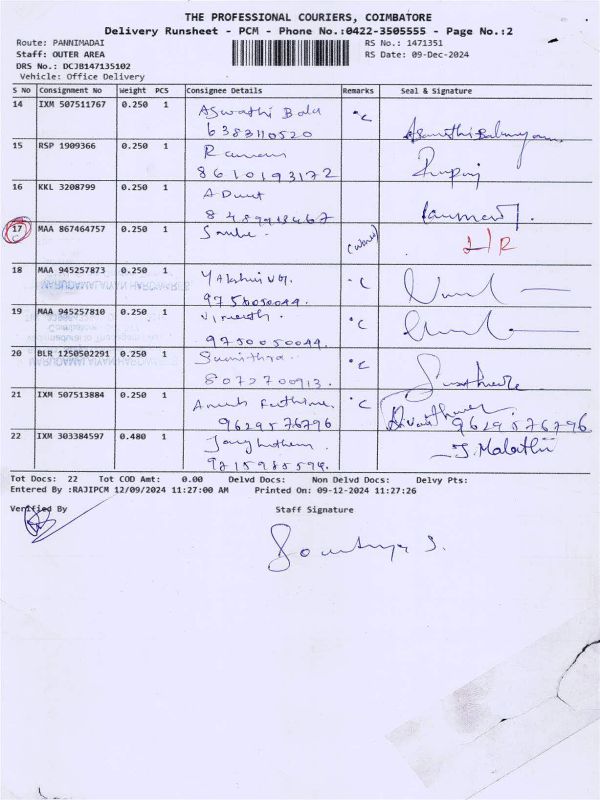 THE PROFESSIONAL COURIERS, COIMBATORE
Delivery Runsheet - PCM - Phone No.:0422-3505555 - Page No.:2
Route: PANNIMADAI RS No.: 1471351
Staff: OUTER AREA RS Date: 09-Dec-2024
DRS No.: DCJB147135102
Vehicle: Office Delivery
S No Consignment No Weight PCS Consignee Details Remarks Seal & Signature
14 IXM 507511767 0.250 1 Aswathi Bala °C
6383110520
15 RSP 1909366 0.250 1
8610193172
16 KKL 3208799 0.250 1
17 MAA 867464757 0.250 1
18 MAA 945257873 0.250 1 °C
9750050044.
19 MAA 945257810 0.250 1 °C
9750050044.
20 BLR 1250502291 0.250 1 Sumithra. °C
8072700913.
21 IXM 507513884 0.250 1 °C
9629576796 9629576796
22 IXM 303384597 0.480 1 J. Malathi
Tot Docs: 22 Tot COD Amt: 0.00 Delvd Docs: Non Delvd Docs: Delvy Pts:
Entered By :RAJIPCM 12/09/2024 11:27:00 AM Printed On: 09-12-2024 11:27:26
Verified By Staff Signature